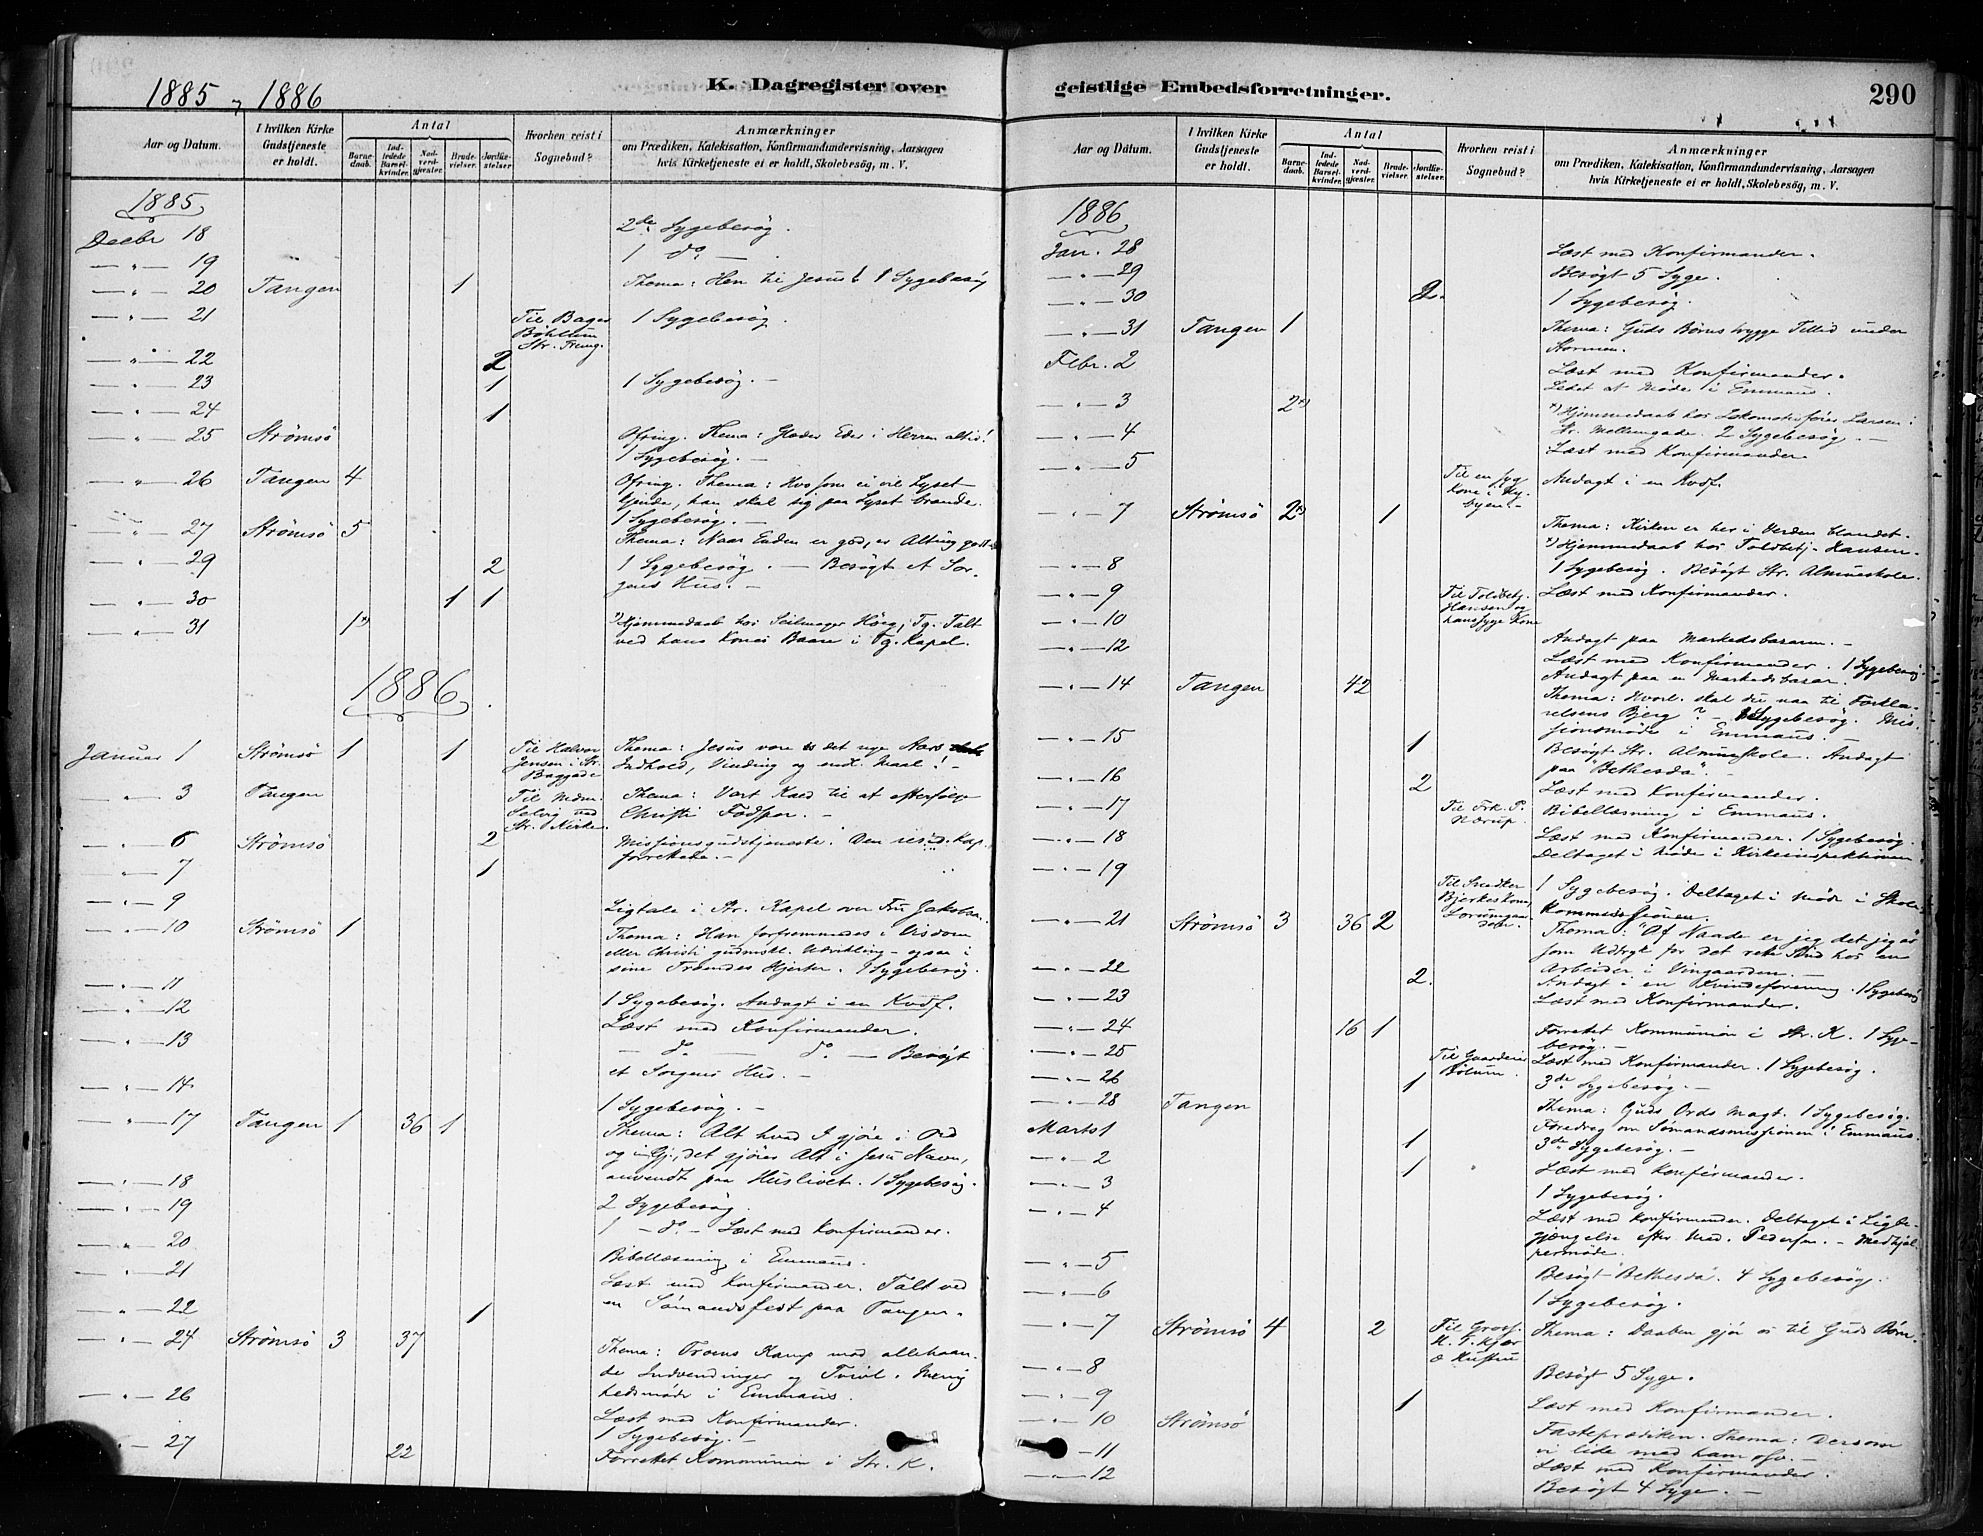 1885 , 1886
K. Dagregister over
Aar og Datum.
I hvilken Kirke Gudstjeneste er holdt.
Antal
Barne-daab.
Ind-ledede Barsel-kvinder.
Nad-verd-gjæster.
Brude-vielser.
Jordfæ-stelser.
Hvorhen reist i Sognebud?
Anmærkninger
om Prædiken, Katekisation, Konfirmandundervisning, Aarsagen
hvis Kirketjeneste ei er holdt, Skolebesøg, m. V.
1885
Decbr 18 2de Sygebesøg.
— " — 19 1 do —
— " — 20 Tangen 1 Thema: Hen til Jesus! 1 Sygebesøg
— " — 21 Til Bager 1 Sygebesøg.
Str.
— " — 22 2
— " — 23 1 1 Sygebesøg. —
— " — 24 1
— " — 25 Strømsö Ofring. Thema: Glæder Eder i Herren altid!
1 Sygebesøg. —
— " — 26 Tangen 4 Ofring. Thema: Hvo som ei vil Lyset
han skal sig paa Lyset brænde.
1 Sygebesøg. —
— " — 27 Strømsö 5 Thema: Naar Enden er god, er Alting godt
— " — 29 2 1 Sygebesøg. — Besøgt et Sor-
gens Hus. —
— " — 30 1 1
— " — 31 1*) *) Hjemmedaab hos Seilmager Höeg, Tg. Talt
ved hans Kones Baare i Tg. Kapel.
1886
Januar 1 Strømsö 1 1 Til Halvor Thema: Jesus være os det nye Aars
Jensen i Str. Indhold, Vinding og endl. Maal! —
Baggade
— " — 3 Tangen Til Mdm. Thema: Vort Kald til at efterfölge
Solvig ved Christi Fodspor. —
Str. Kirke
— " — 6 Strømsö 2 Missionsgudstjeneste. Den resid. Kap.
forrettede. —
— " — 7 1
— " — 9 Ligtale i Str. Kapel over Fru Jakobsen.
— " — 10 Strømsö 1 Thema: Han forfremmedes i Visdom
eller Christi gudmskl. Udvikling — ogsaa i
sine Troendes Hjerter. 1 Sygebesøg.
— " — 11 1 Sygebesøg. Andagt i en Kvdf.
— " — 12 Læst med Konfirmander.
— " — 13 — do — do — Besøgt
et Sorgens Hus. —
— " — 14 1 Sygebesøg. —
— " — 17 Tangen 1 36 1 Thema: Alt hvad I gjøre i Ord
og i Gj., det gjører Alt i Jesu Navn,
anvendt paa Huslivet. 1 Sygebesøg.
— " — 18 2 Sygebesøg.
— " — 19 1 — do — Læst med Konfirmander.
— " — 20 Bibellæsning i Emmaus.
— " — 21 Læst med Konfirmander. Talt ved
en Sømandsfest paa Tangen.
— " — 22 1
— " — 24 Strømsö 3 37 Thema: Troens Kamp mod allehaan-
de Indvendinger og Tvivl. Menig
hedsmøde i Emmaus.
— " — 26 Læst med Konfirmander.
1 Sygebesøg. —
— " — 27 22 Forrettet Kommunion i Str. K.
geistlige Embedsforretninger.
290
Aar og Datum.
I hvilken Kirke Gudstjeneste er holdt.
Antal
Barne-daab.
Ind-ledede Barsel-kvinder.
Nad-verd-gjæster.
Brude-vielser.
Jordfæ-stelser.
Hvorhen reist i Sognebud?
Anmærkninger
om Prædiken, Katekisation, Konfirmandundervisning, Aarsagen
hvis Kirketjeneste ei er holdt, Skolebesøg, m. V.
1886
Jan. 28 Læst med Konfirmander.
— " — 29 Besøgt 5 Syge.
— " — 30 2. 1 Sygebesøg.
— " — 31 Tangen 1 Thema: Guds Börns trygge Tillid under
Stormen.
Febr. 2 Læst med Konfirmander.
Ledet et Møde i Emmaus.
— " — 3 2*) *) Hjemmedaab hos Lokomotivförer Larsen i
— " — 4 Str. Mellemgade. 2 Sygebesøg. —
Læst med Konfirmander.
— " — 5 Til en syg Andagt i en Kvdf.
Kone i Ny-
byen. —
— " — 7 Strømsö 2*) 1 Thema: Kirken er her i Verden blandet.
*) Hjemmedaab hos Toldbetj. Hansen.
— " — 8 1 Sygebesøg. Besøgt Str. Almueskole.
— " — 9 Til Toldbetj. Læst med Konfirmander.
Hansen og
— " — 10 hans syge Kone
— " — 12 Andagt paa Markedsbasaren. —
Læst med Konfirmander. 1 Sygebesøg.
— " — 14 Tangen 42 Andagt paa en Markedsbasar.
Thema: Hvorl. skal du naa til Forkla-
relsens Bjerg? — Sygebesøg. Mis-
sionsmøde i Emmaus.
— " — 15 1 Besøgt Str. Almueskole. Andagt
paa "Bethesda".
— " — 16 2 Læst med Konfirmander.
— " — 17 Til Frk. P. Bibellæsning i Emmaus.
Nærup.
— " — 18 Læst med Konfirmander. 1 Sygebesøg.
Deltaget i Møde i Kirkeinspektionen
— " — 19 Til Snedker 1 Sygebesøg. Deltaget i Møde i Skole-
Bjerkes Kone, Kommissionen.
— " — 21 Strømsö 3 36 2 Thema: "Af Naade er jeg det jeg er"
som Udtryk for det rette Sind hos en
Arbeider i Vingaarden.
— " — 22 2. Andagt i en Kvindeforening. 1 Sygebesøg
— " — 23 Læst med Konfirmander.
— " — 24 16 1 Forrettet Kommunion i Str. K. 1 Syge-
besøg. —
— " — 25 Til Læst med Konfirmander. 1 Sygebesøg.
— " — 26 1 3de Sygebesøg. —
— " — 28 Tangen Thema: Guds Ords Magt. 1 Sygebesøg.
Marts 1 1 Foredrag om Sømandsmissionen i Emmaus.
3de Sygebesøg. —
— " — 2 1 Læst med Konfirmander.
— " — 3 1 Sygebesøg.
— " — 4 Læst med Konfirmander. Deltaget i Ligbe-
gjængelse efter Mad. Pedersen. — Medhjæl-
permøde.
— " — 5 Besøgt "Bethesda". 4 Sygebesøg.
— " — 6 1 Sygebesøg.
— " — 7 Strømsö 4 2 Til Gross. Thema: Daaben gjør os til Guds Børn.
Kjær
& Hustru
— " — 8 Besøgt 5 Syge.
— " — 9 1 Læst med Konfirmander.
— " — 10 Strømsö Fasteprædiken. Thema: Dersom
vi lide med ham osv. —
— " — 11 Læst med Konfirmander.
— " — 12 Besøgt 4 Syge. —